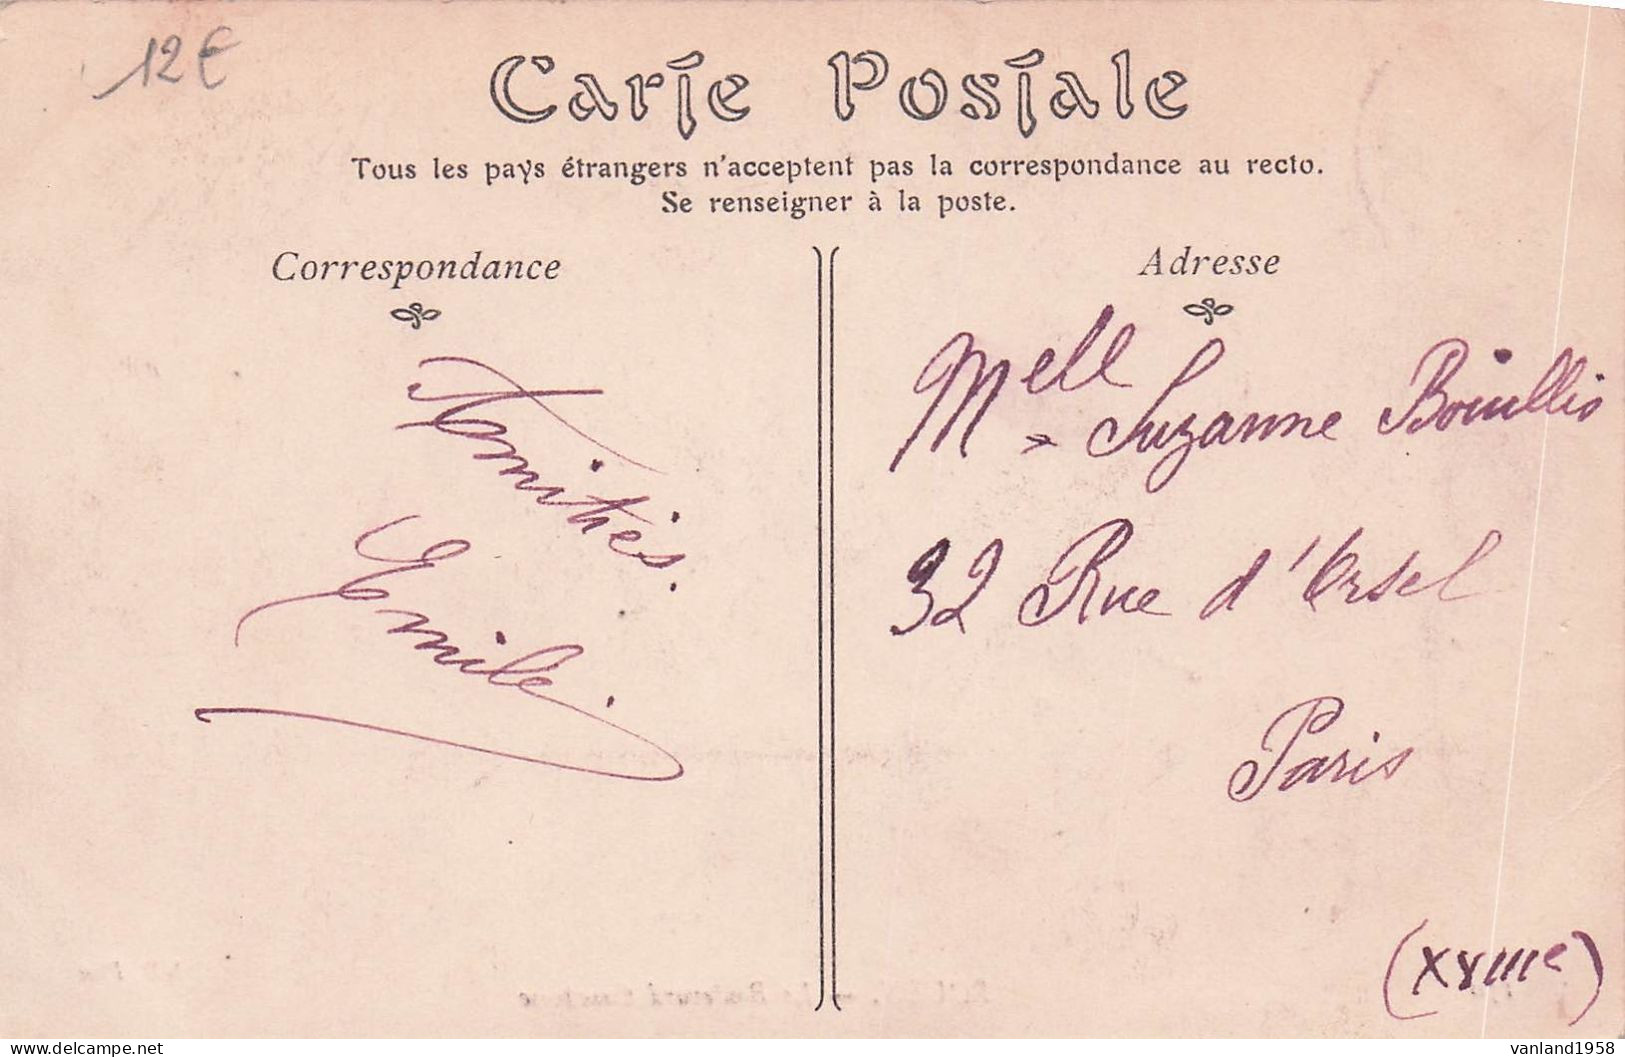 12€
Carte Postale
Tous les pays étrangers n'acceptent pas la correspondance au recto.
Se renseigner à la poste.
Correspondance
Amitiés.
Emile.
Adresse
Melle Suzanne Bouillis
32 Rue d'Orsel
Paris
(XVIIIe)
vanland1958